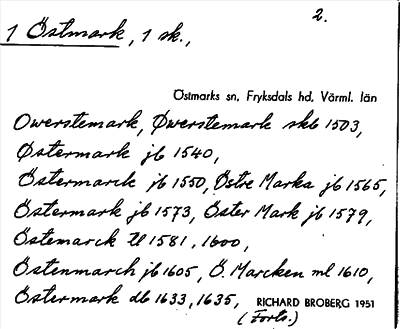 2.
1 Östmark, 1 sk.,
Östmarks sn, Fryksdals hd, Värml. län
Owerstemark, Øwerstemark skb 1503,
Østermark jb 1540,
Östermarck jb 1550, Östre Marka jb 1565,
Östermark jb 1573, Öster Mark jb 1579,
Östemarck tl 1581, 1600,
Östenmarch jb 1605, Ö. Marcken ml 1610,
Östermark db 1633, 1635, RICHARD BROBERG 1951
(Forts.)